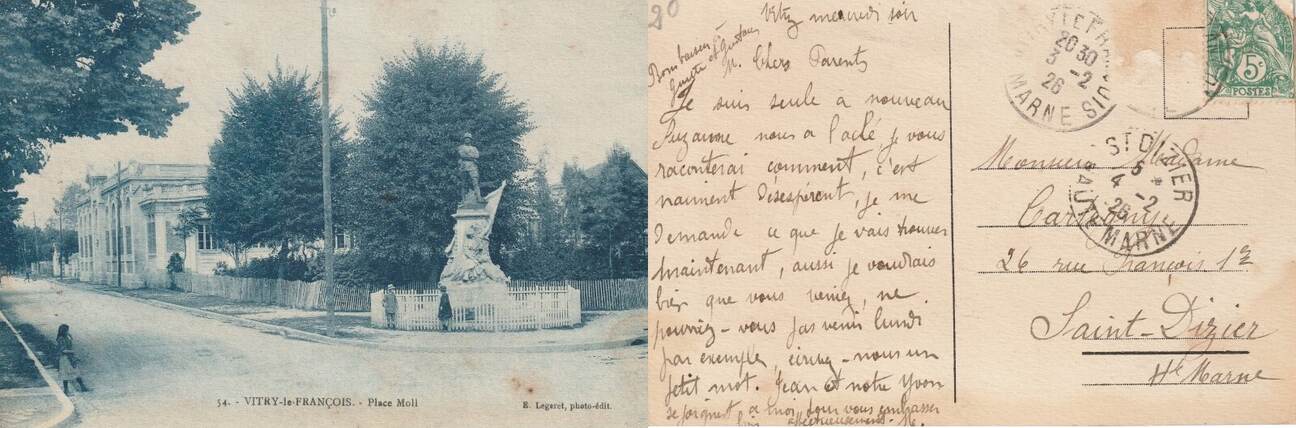 54. - VITRY-le-FRANÇOIS. - Place Moll
E. Legeret, photo-édit.
20
Vitry mercredi soir
Bons baisers à
M. Chers Parents
Je suis seule à nouveau
Suzanne nous a laché, je vous
raconterai comment, c'est
vraiment désespérent, je me
demande ce que je vais trouver
maintenant, aussi je voudrais
bien que vous veniez, ne
pourriez-vous pas venir lundi
par exemple, écrivez-nous un
petit mot. Jean et notre Yvon
se joignent à moi pour vous embrasser
affectueusement.
VITRY LE FRANÇOIS
20 30
3 -2
26
MARNE
5c
POSTES
ST DIZIER
5 *
4 -2
26
HAUTE MARNE
Monsieur Madame
26 rue François 1er
Saint-Dizier
Hte Marne